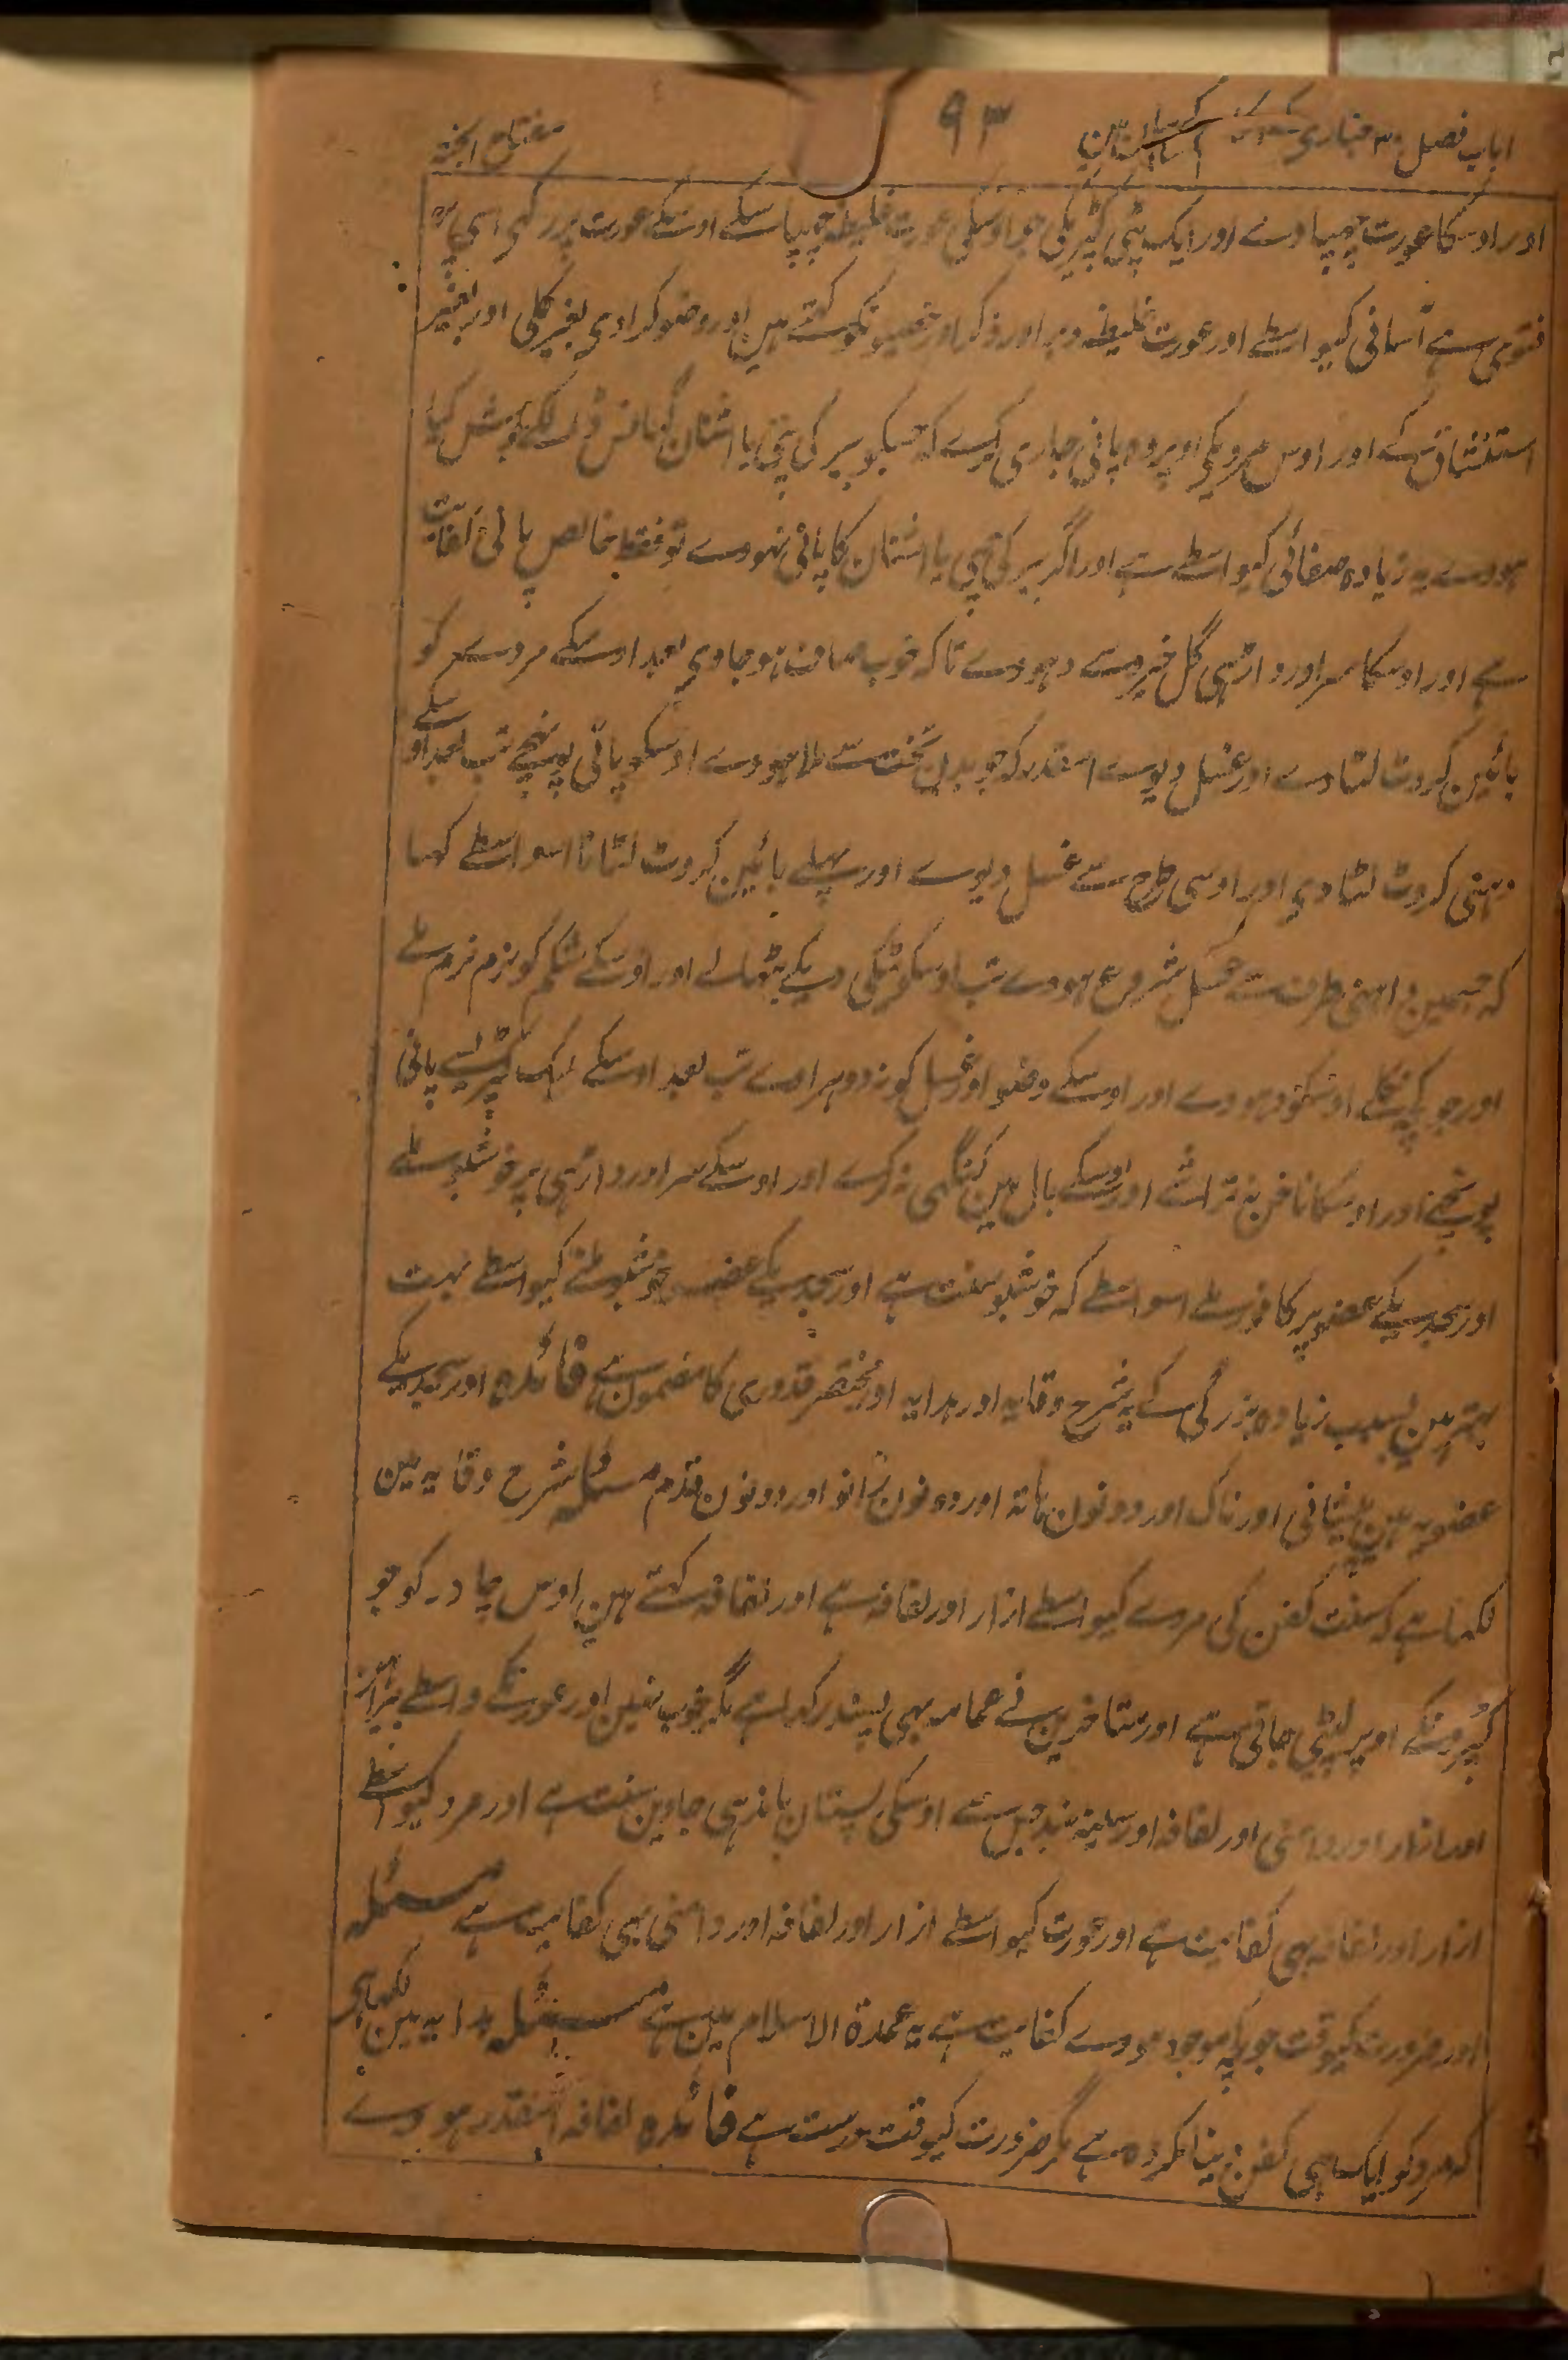 باب فصل ۳
۹۳
مفتاح الجنۃ
اور اوسکا عورت چہپاوے اور ایک پٹی کپڑیکی جو اوسکی عورت غلیظہ چہپا سکے اوسکے عورت پر رکہی اسی پر
فتویٰ ہے آسانی کیواسطے اور عورت غلیظہ دبر اور ذکر اور خصیونکو کہتے ہین اور وضو کرادی بغیر کلی اور بغیر
استنشاق کے اور اوس مردیکے اوپر وہ پانی جاری کرے کہ جسکو بیر کی پتی یا اشنان گہانس ڈالکے جوش کیا
ہووے یہ زیادہ صفائی کیواسطے ہے اور اگر بیر کی پتی یا اشنان کا پانی نہووے تو فقط خالص پانی کفایت
ہے اور اوسکا سر اور داڑہی گل خیرو سے دہووے تاکہ خوب صاف ہو جاوی بعد اوسکے مردے کو
بائین کروٹ لٹاوے اور غسل دیوے اسقدر کہ جو بدن تخت سے ملا ہووے اوسکو پانی پہنچے تب بعد اوسکے
دہنی کروٹ لٹا دی اور اوسی طرح سے غسل دیوے اور پہلے بائین کروٹ لٹانا اسواسطے کہا
کہ جسمین داہنی طرف سے غسل شروع ہووے تب اوسکو ٹیکی دیکے بٹھاے اور اوسکے شکم کو نرم نرم ملے
اور جو کچہ نکلے اوسکو دہووے اور اوسکے وضو اور غسل کو نہ دوہراوے تب بعد اوسکے ایک کپڑے سے پانی
پونچہے اور اوسکا ناخن نہ تراشے اور اوسکے بال مین کنگہی نہ کرے اور اوسکے سر اور داڑہی پر خوشبو ملے
اور سجدیکے عضو پر کافور ملے اسواسطے کہ خوشبو سنت ہے اور سجدیکے عضو خوشبو ملنے کیواسطے بہت
بہتر ہین بسبب زیادہ بزرگی کے یہ شرح وقایہ اور ہدایہ اور مختصر قدوری کا مضمون ہے فائدہ اور سجدیکے
عضو یہ ہین پیشانی اور ناک اور دونون ہاتہ اور دونون زانو اور دونون قدم مسئلہ شرح وقایہ مین
لکہا ہے کہ سنت کفن کی مردے کیواسطے ازار اور لفافہ ہے اور لفافہ کہتے ہین اوس چادر کو جو
کپڑونکے اوپر لپیٹی جاتی ہے اور متاخرین نے عمامہ بہی پسند رکہا ہے مگر خوب نہین اور عورتکے واسطے پیراہن
اور ازار اور دامنی اور لفافہ اور سینہ بند جس سے اوسکی پستان باندہی جاوین سنت ہے اور مرد کیواسطے
ازار اور لفافہ بہی کفایت ہے اور عورت کیواسطے ازار اور لفافہ اور دامنی بہی کفایت ہے مسئلہ
اور ضرورت کیوقت جو کچہ موجود ہووے کفایت ہے یہ عمدۃ الاسلام مین ہے مسئلہ ہدایہ مین لکہا ہے
کہ مرد کو ایک ہی کفن دینا مکروہ ہے مگر ضرورت کیوقت درست ہے فائدہ لفافہ اسقدر ہووے